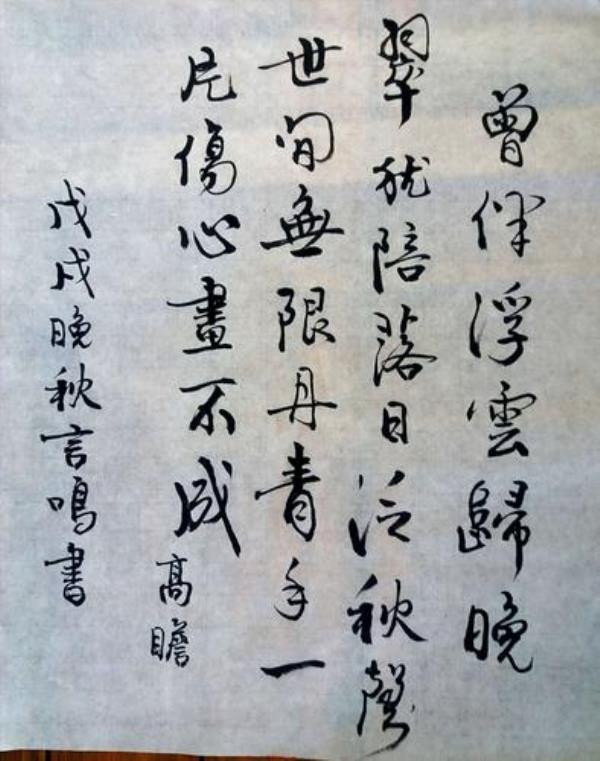 曾伴浮雲歸晚
翠猶陪落日泛秋聲
世間無限丹青手一
片傷心畫不成
高瞻
戊戌晚秋言鳴書